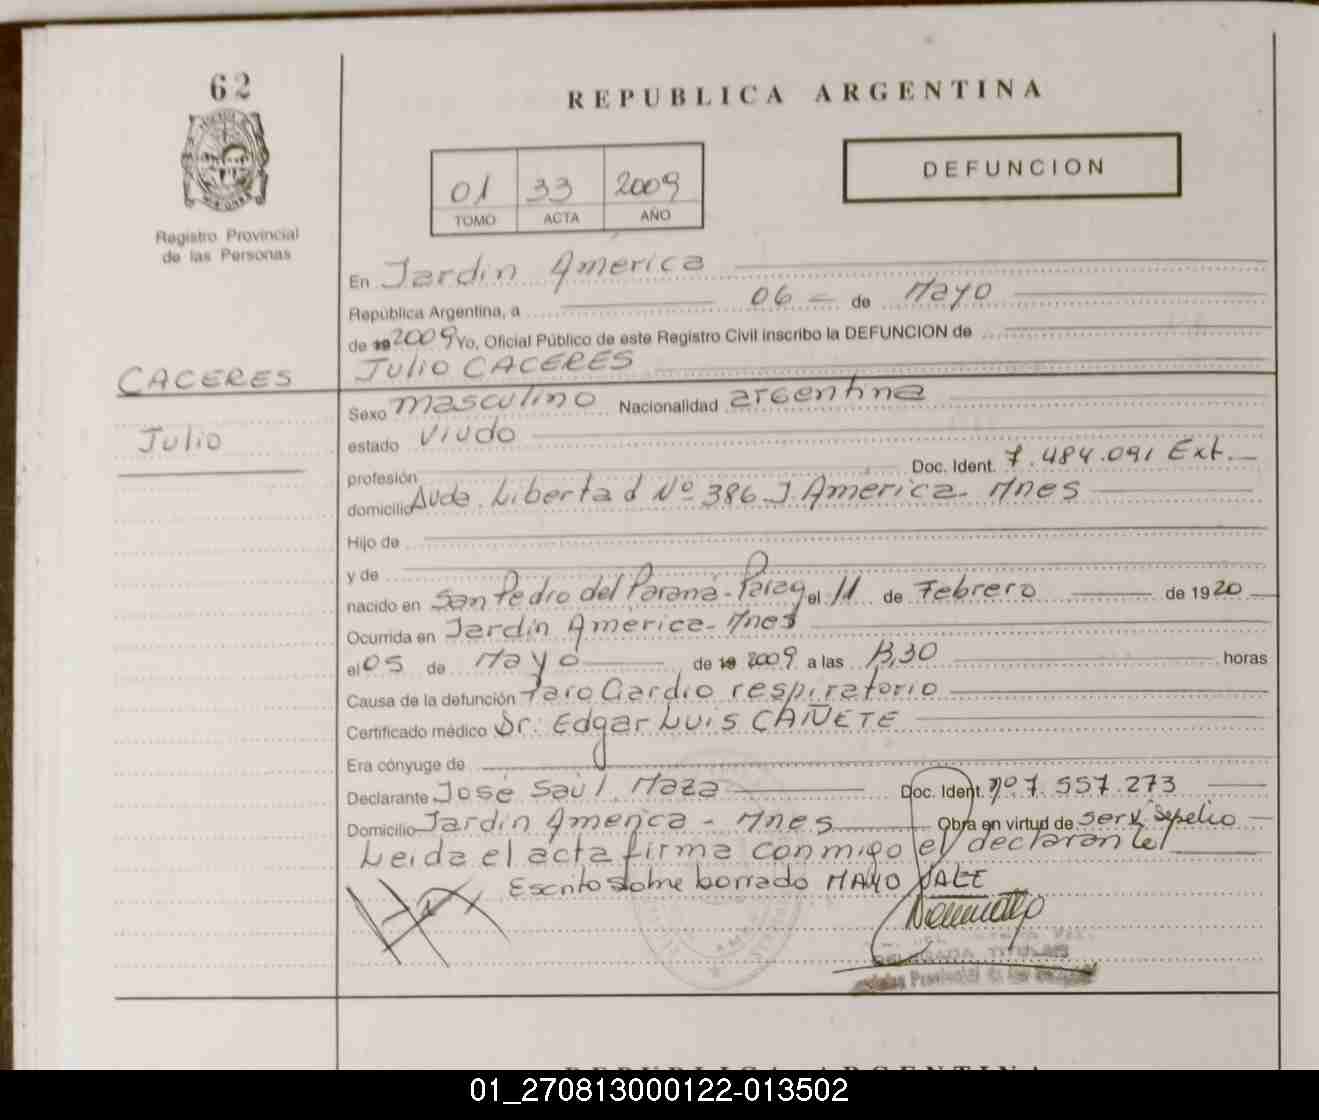 62
REPUBLICA ARGENTINA
DEFUNCION
01 33 2009
TOMO ACTA AÑO
Registro Provincial
de las Personas
En Jardín América
República Argentina, a 06 de Mayo
de 19 2009 Yo, Oficial Público de este Registro Civil inscribo la DEFUNCION de
CACERES
Julio CACERES
Sexo masculino Nacionalidad argentina
Julio
estado Viudo
profesión Doc. Ident. 7.484.091 Ext.
domicilio Avda. Libertad Nº 386 J. América - Mnes
Hijo de
y de
nacido en San Pedro del Paraná - Parag el 11 de Febrero de 1920
Ocurrida en Jardín América - Mnes
el 05 de Mayo de 19 2009 a las 13,30 horas
Causa de la defunción Paro Cardio respiratorio
Certificado médico Dr. Edgar Luis CAÑETE
Era cónyuge de
Declarante José Saúl Maza Doc. Ident. Nº 7.557.273
Domicilio Jardín América - Mnes Obra en virtud de Serv. Sepelio
Leida el acta firma conmigo el declarante
Escrito sobre borrado MAYO VALE
TITULAR
Provincial de las
REPUBLICA ARGENTINA
01_270813000122-013502